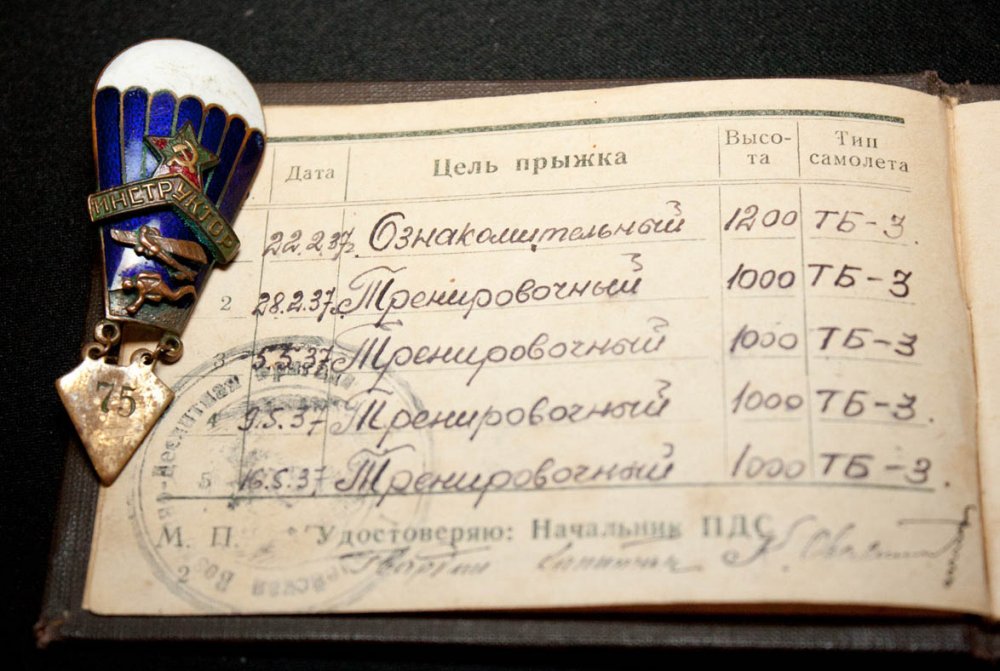 ИНСТРУКТОР
75
Дата Цель прыжка Высо-та Тип самолета
22.2.37. Ознакомительный 1200 ТБ-3.
2 28.2.37. Тренировочный 1000 ТБ-3
3 5.5.37 Тренировочный 1000 ТБ-3
4 9.5.37 Тренировочный 1000 ТБ-3.
5 16.5.37 Тренировочный 1000 ТБ-3.
М. П. Удостоверяю: Начальник ПДС
Гвардии капитан